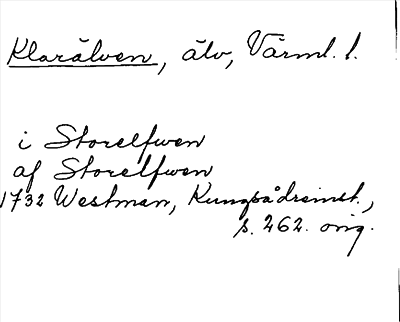 Klarälven, älv, Värml. l.
i Storelfwen
af Storelfwen
1732 Westman,
s. 262. orig.